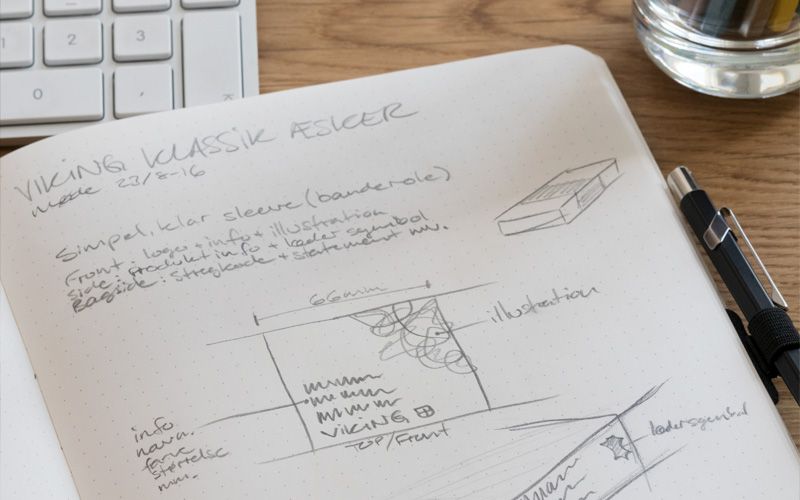 1
2
3
0
,
VIKING KLASSIK ÆSKER
møde 23/8-16
Simpel, klar sleeve (banderole)
Front: logo + info + illustration
Side: Produkt info + læder symbol
Bagside: stregkode + statement mv.
66mm
illustration
VIKING
TOP/Front
info
navn
farve
størrelse
mm.
lædersymbol